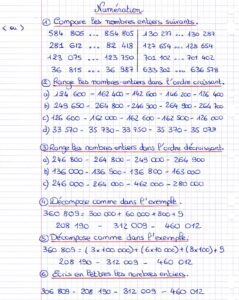 Numération
① Compare les nombres entiers suivants.
584 805 ... 854 805 | 130 277 ... 130 287
281 612 ... 82 418 | 127 654 ... 128 654
123 075 ... 123 750 | 701 102 ... 701 402
36 815 ... 36 987 | 633 302 ... 636 578
② Range les nombres entiers dans l'ordre croissant.
a) 124 600 - 162 400 - 142 600 - 146 200 - 126 400
b) 249 650 - 264 800 - 246 900 - 264 900 - 264 700
c) 126 600 - 162 000 - 162 600 - 162 900 - 126 000
d) 33 570 - 35 730 - 33 750 - 35 370 - 35 073
③ Range les nombres entiers dans l'ordre décroissant.
a) 246 800 - 264 800 - 249 000 - 264 900
b) 136 000 - 136 900 - 136 800 - 163 000
c) 246 000 - 264 000 - 462 000 - 280 000
④ Décompose comme dans l'exemple.
360 809 = 300 000 + 60 000 + 800 + 9
208 190 - 312 009 - 460 012
⑤ Décompose comme dans l'exemple.
360 809 = (3 x 100 000) + (6 x 10 000) + (8 x 100) + 9
208 190 - 312 009 - 460 012
⑥ Écris en lettres les nombres entiers.
306 809 - 208 190 - 312 009 - 460 012